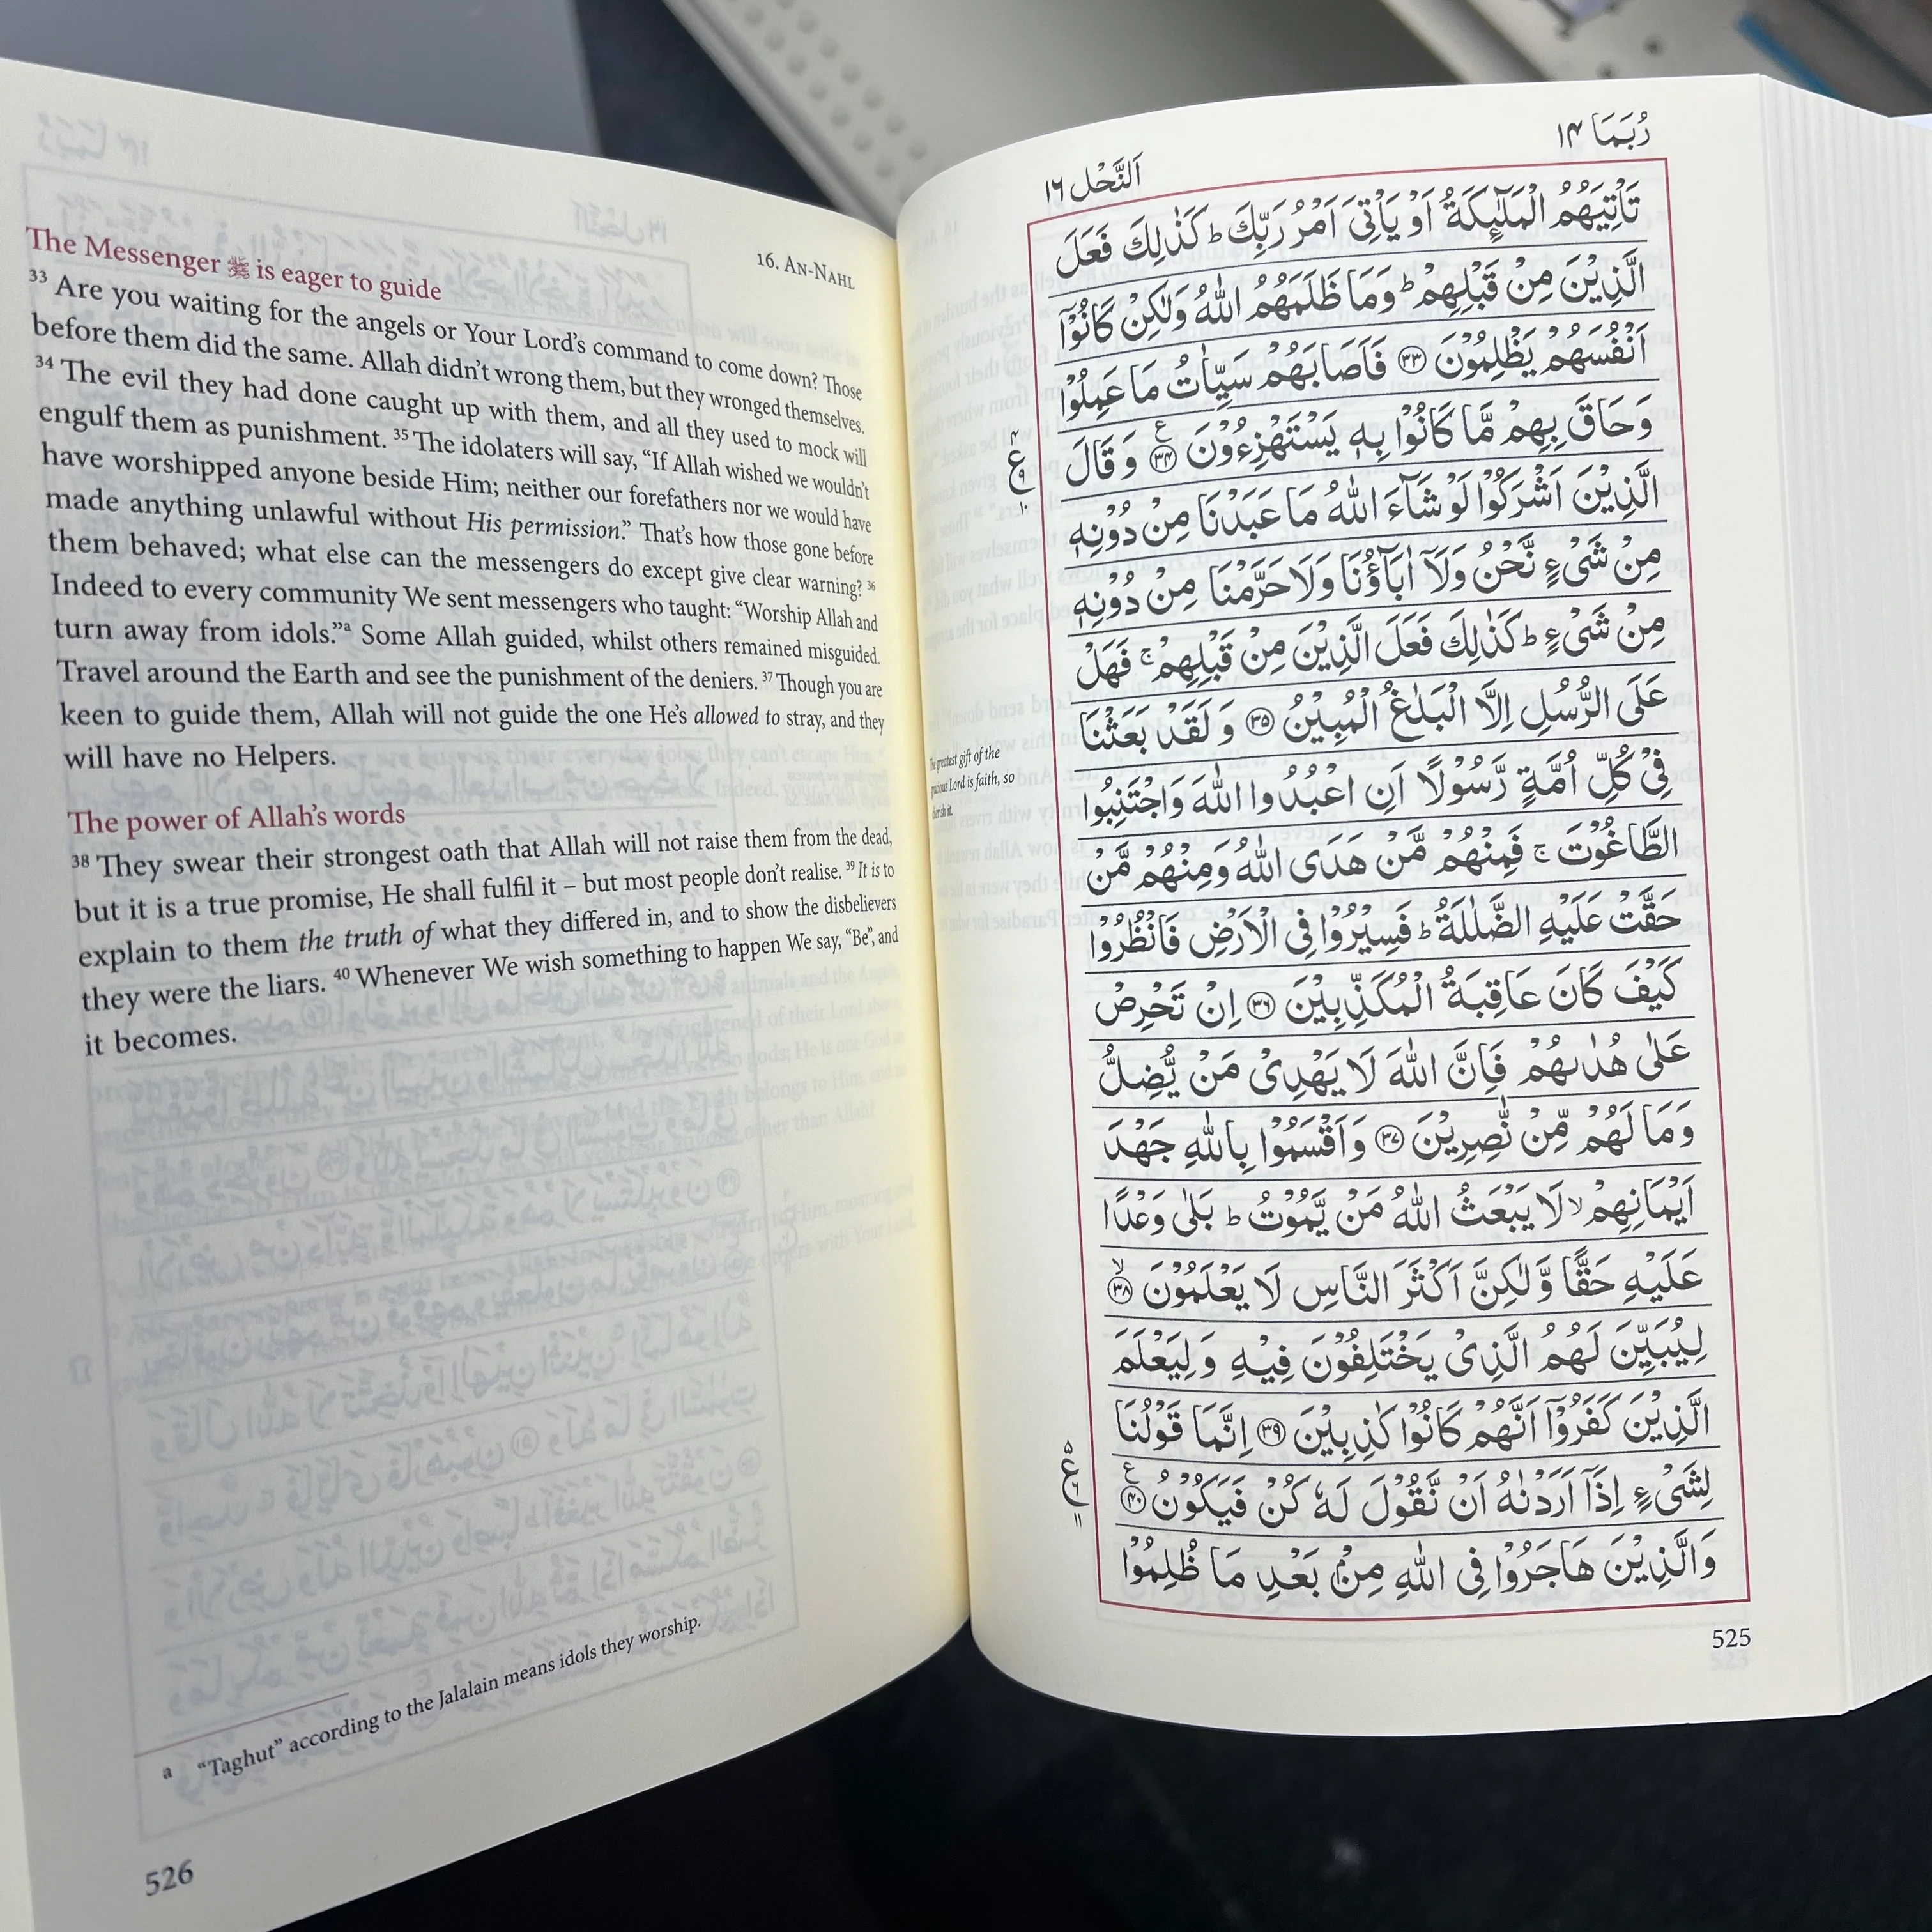 رُبَمَا ١٤
اَلنَّحْل ١٦
تَاْتِيَهُمُ الْمَلٰٓئِكَةُ اَوْ يَاْتِيَ اَمْرُ رَبِّكَ ؕ كَذٰلِكَ فَعَلَ
الَّذِيْنَ مِنْ قَبْلِهِمْ ؕ وَمَا ظَلَمَهُمُ اللّٰهُ وَلٰكِنْ كَانُوْۤا
اَنْفُسَهُمْ يَظْلِمُوْنَ ﴿۳۳﴾ فَاَصَابَهُمْ سَيِّاٰتُ مَا عَمِلُوْا
وَحَاقَ بِهِمْ مَّا كَانُوْا بِهٖ يَسْتَهْزِءُوْنَ ﴿۳۴﴾ وَ قَالَ
الَّذِيْنَ اَشْرَكُوْا لَوْ شَآءَ اللّٰهُ مَا عَبَدْنَا مِنْ دُوْنِهٖ
مِنْ شَىْءٍ نَّحْنُ وَلَاۤ اٰبَآؤُنَا وَلَا حَرَّمْنَا مِنْ دُوْنِهٖ
مِنْ شَىْءٍ ؕ كَذٰلِكَ فَعَلَ الَّذِيْنَ مِنْ قَبْلِهِمْ ۚ فَهَلْ
عَلَى الرُّسُلِ اِلَّا الْبَلٰغُ الْمُبِيْنُ ﴿۳۵﴾ وَ لَقَدْ بَعَثْنَا
فِىْ كُلِّ اُمَّةٍ رَّسُوْلًا اَنِ اعْبُدُوا اللّٰهَ وَاجْتَنِبُوا
الطَّاغُوْتَ ۚ فَمِنْهُمْ مَّنْ هَدَى اللّٰهُ وَمِنْهُمْ مَّنْ
حَقَّتْ عَلَيْهِ الضَّلٰلَةُ ؕ فَسِيْرُوْا فِى الْاَرْضِ فَانْظُرُوْا
كَيْفَ كَانَ عَاقِبَةُ الْمُكَذِّبِيْنَ ﴿۳۶﴾ اِنْ تَحْرِصْ
عَلٰى هُدٰٮهُمْ فَاِنَّ اللّٰهَ لَا يَهْدِىْ مَنْ يُّضِلُّ
وَمَا لَهُمْ مِّنْ نّٰصِرِيْنَ ﴿۳۷﴾ وَاَقْسَمُوْا بِاللّٰهِ جَهْدَ
اَيْمَانِهِمْ ۙ لَا يَبْعَثُ اللّٰهُ مَنْ يَّمُوْتُ ؕ بَلٰى وَعْدًا
عَلَيْهِ حَقًّا وَّلٰكِنَّ اَكْثَرَ النَّاسِ لَا يَعْلَمُوْنَ ﴿۳۸﴾
لِيُبَيِّنَ لَهُمُ الَّذِىْ يَخْتَلِفُوْنَ فِيْهِ وَ لِيَعْلَمَ
الَّذِيْنَ كَفَرُوْۤا اَنَّهُمْ كَانُوْا كٰذِبِيْنَ ﴿۳۹﴾ اِنَّمَا قَوْلُنَا
لِشَىْءٍ اِذَاۤ اَرَدْنٰهُ اَنْ نَّقُوْلَ لَهٗ كُنْ فَيَكُوْنُ ﴿۴۰﴾
وَالَّذِيْنَ هَاجَرُوْا فِى اللّٰهِ مِنْۢ بَعْدِ مَا ظُلِمُوْا
525
The greatest gift of the
gracious Lord is faith, so
cherish it.
16. AN-NAHL
The Messenger ﷺ is eager to guide
33 Are you waiting for the angels or Your Lord’s command to come down? Those
before them did the same. Allah didn’t wrong them, but they wronged themselves.
34 The evil they had done caught up with them, and all they used to mock will
engulf them as punishment. 35 The idolaters will say, “If Allah wished we wouldn’t
have worshipped anyone beside Him; neither our forefathers nor we would have
made anything unlawful without His permission.” That’s how those gone before
them behaved; what else can the messengers do except give clear warning? 36
Indeed to every community We sent messengers who taught: “Worship Allah and
turn away from idols.”a Some Allah guided, whilst others remained misguided.
Travel around the Earth and see the punishment of the deniers. 37 Though you are
keen to guide them, Allah will not guide the one He’s allowed to stray, and they
will have no Helpers.
The power of Allah’s words
38 They swear their strongest oath that Allah will not raise them from the dead,
but it is a true promise, He shall fulfil it – but most people don’t realise. 39 It is to
explain to them the truth of what they differed in, and to show the disbelievers
they were the liars. 40 Whenever We wish something to happen We say, “Be”, and
it becomes.
a “Taghut” according to the Jalalain means idols they worship.
526